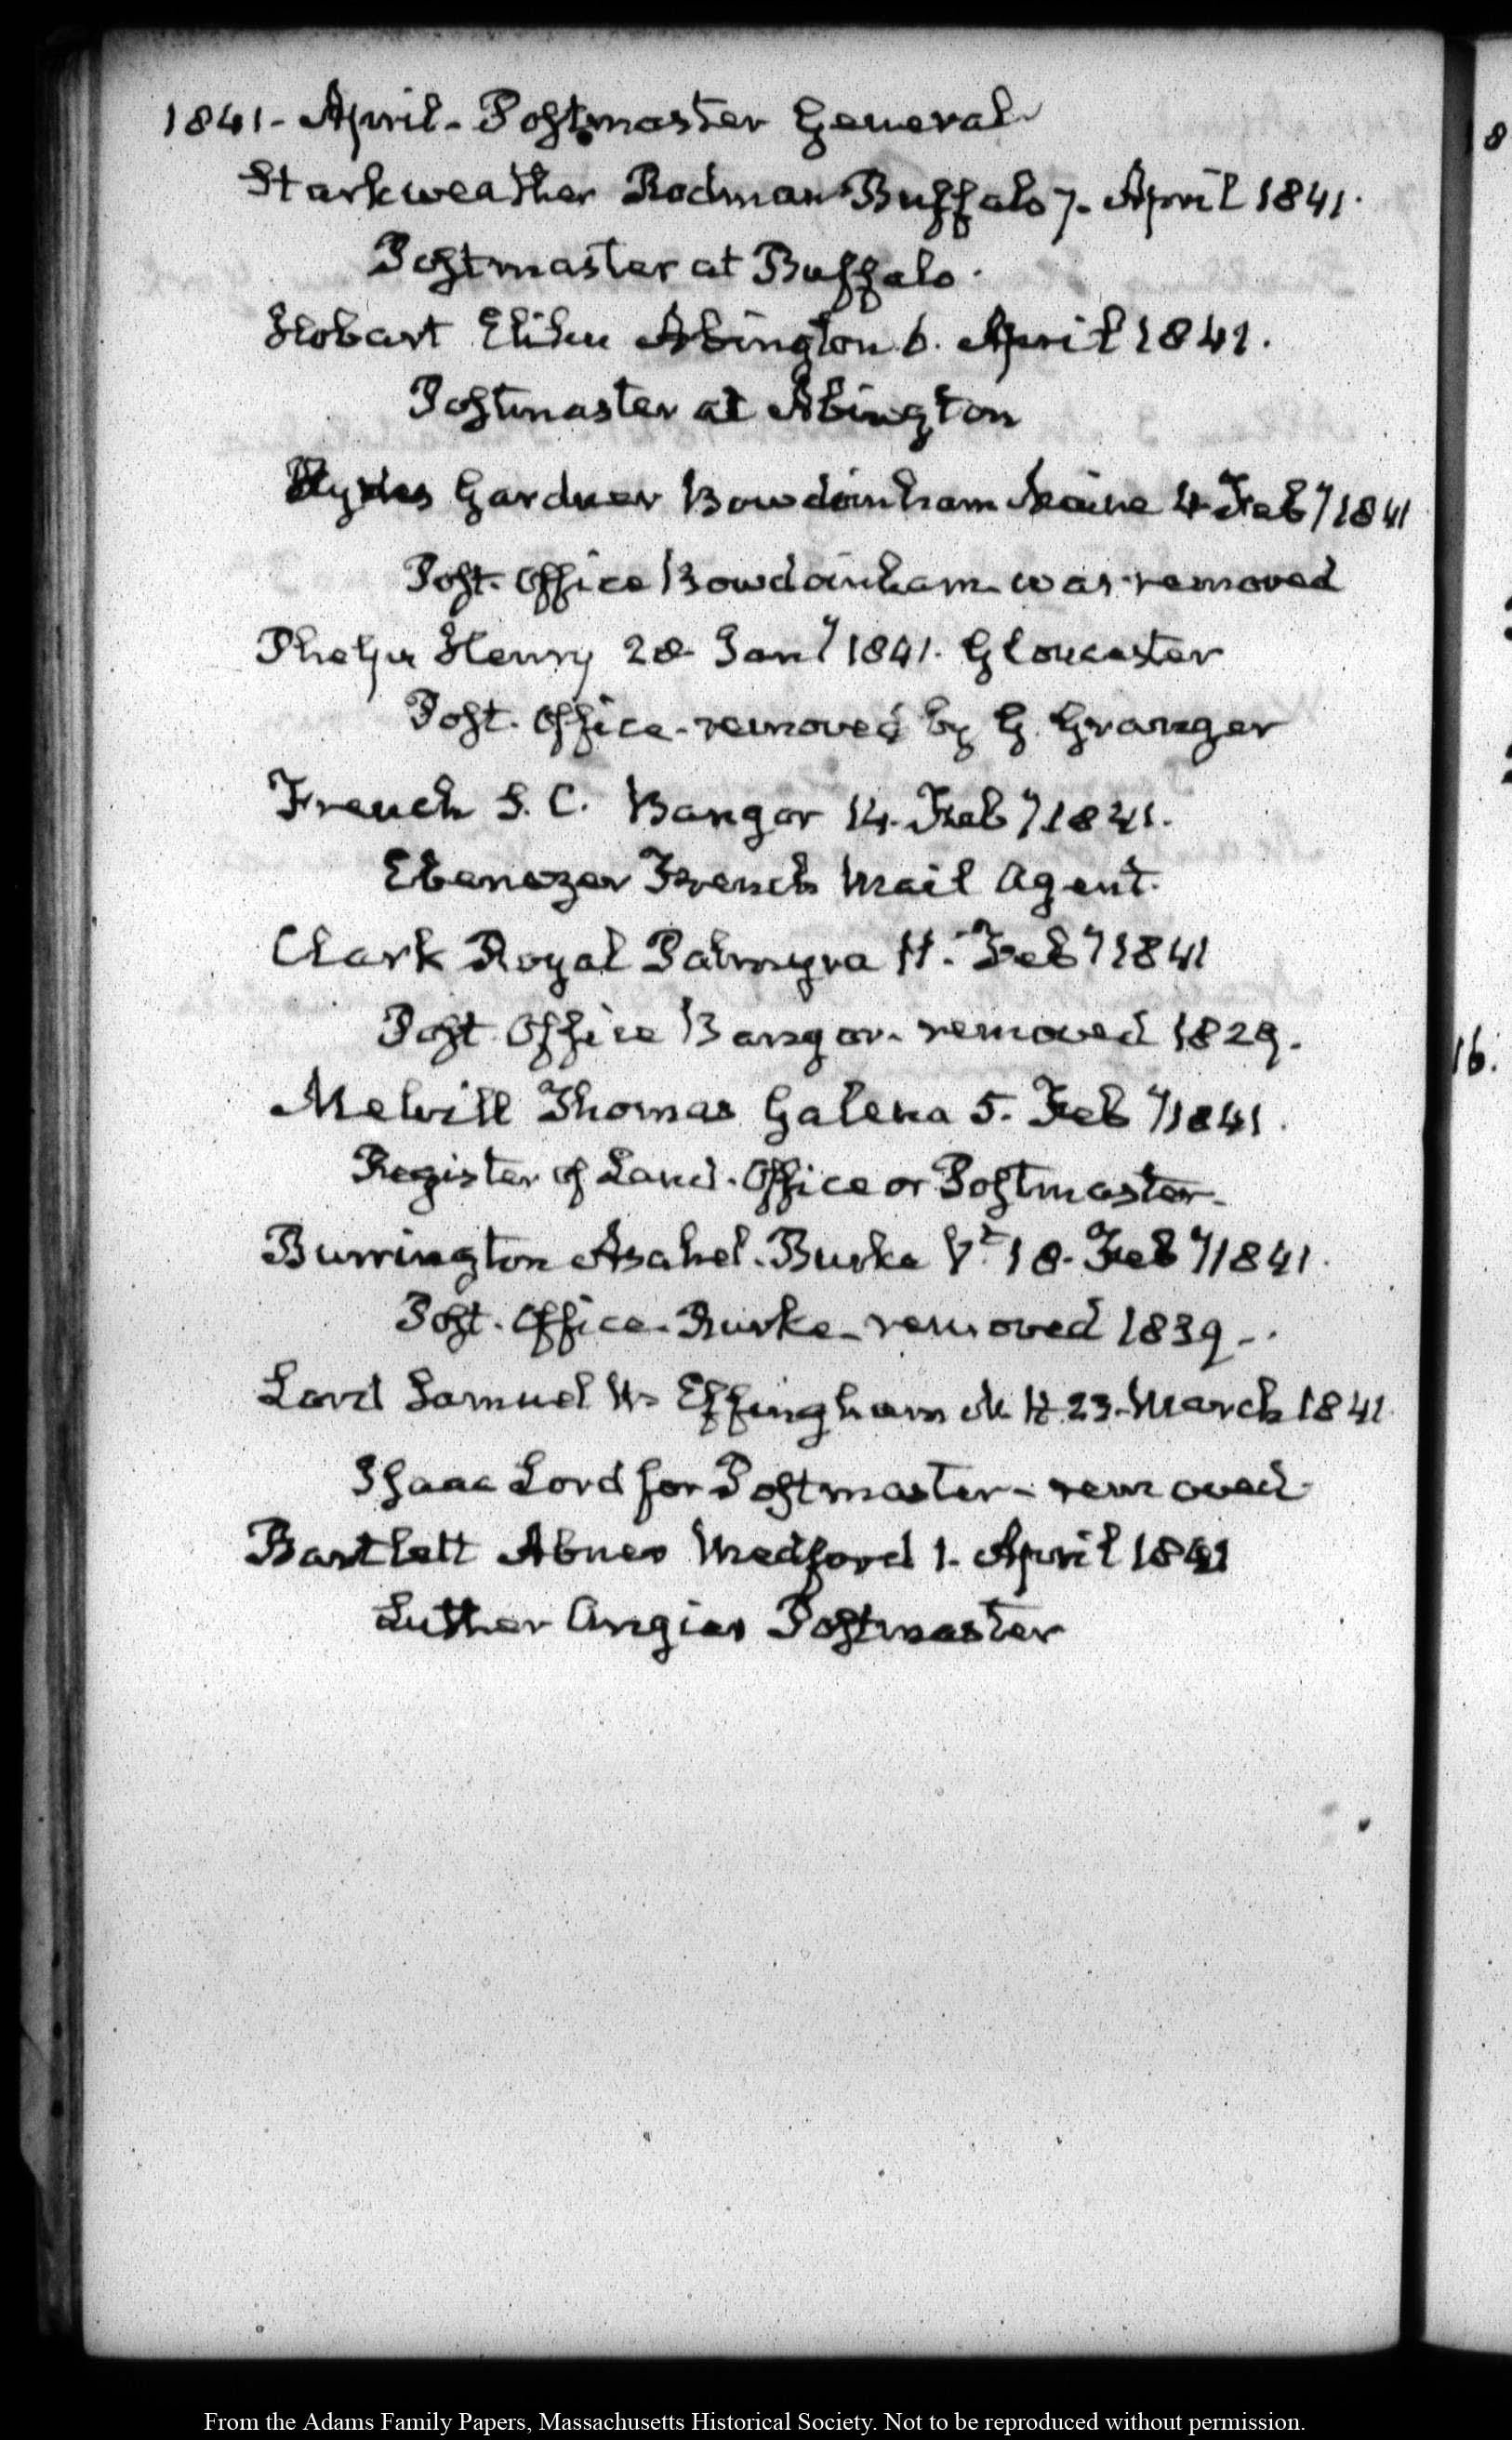 1841- April- Postmaster General
Starkweather Rodman Buffalo 7- April 1841.
Postmaster at Buffalo.
Hobart Elihu Abington 6. April 1841.
Postmaster at Abington
Gardner Bowdoinham Maine 4 Feby 1841
Post-Office Bowdoinham was removed
Phelps Henry 28 Jany 1841. Gloucester
Post-Office-removed by G. Granger
French S. C. Bangor 14. Feby 1841.
Ebenezer French Mail Agent.
Clark Royal Palmyra 11. Feby 1841
Post Office Bangor- removed 1829.
Melvill Thomas Galena 5. Feby 1841.
Register of Land-Office or Postmaster-
Burrington Asahel-Burke Vt 18-Feby 1841.
Post-Office-Burke-removed 1839-.
Lord Samuel W Effingham N H 23-March 1841
Isaac Lord for Postmaster- removed-
Bartlett Abner Medford 1- April 1841
Luther Angier Postmaster
8
16.
From the Adams Family Papers, Massachusetts Historical Society. Not to be reproduced without permission.